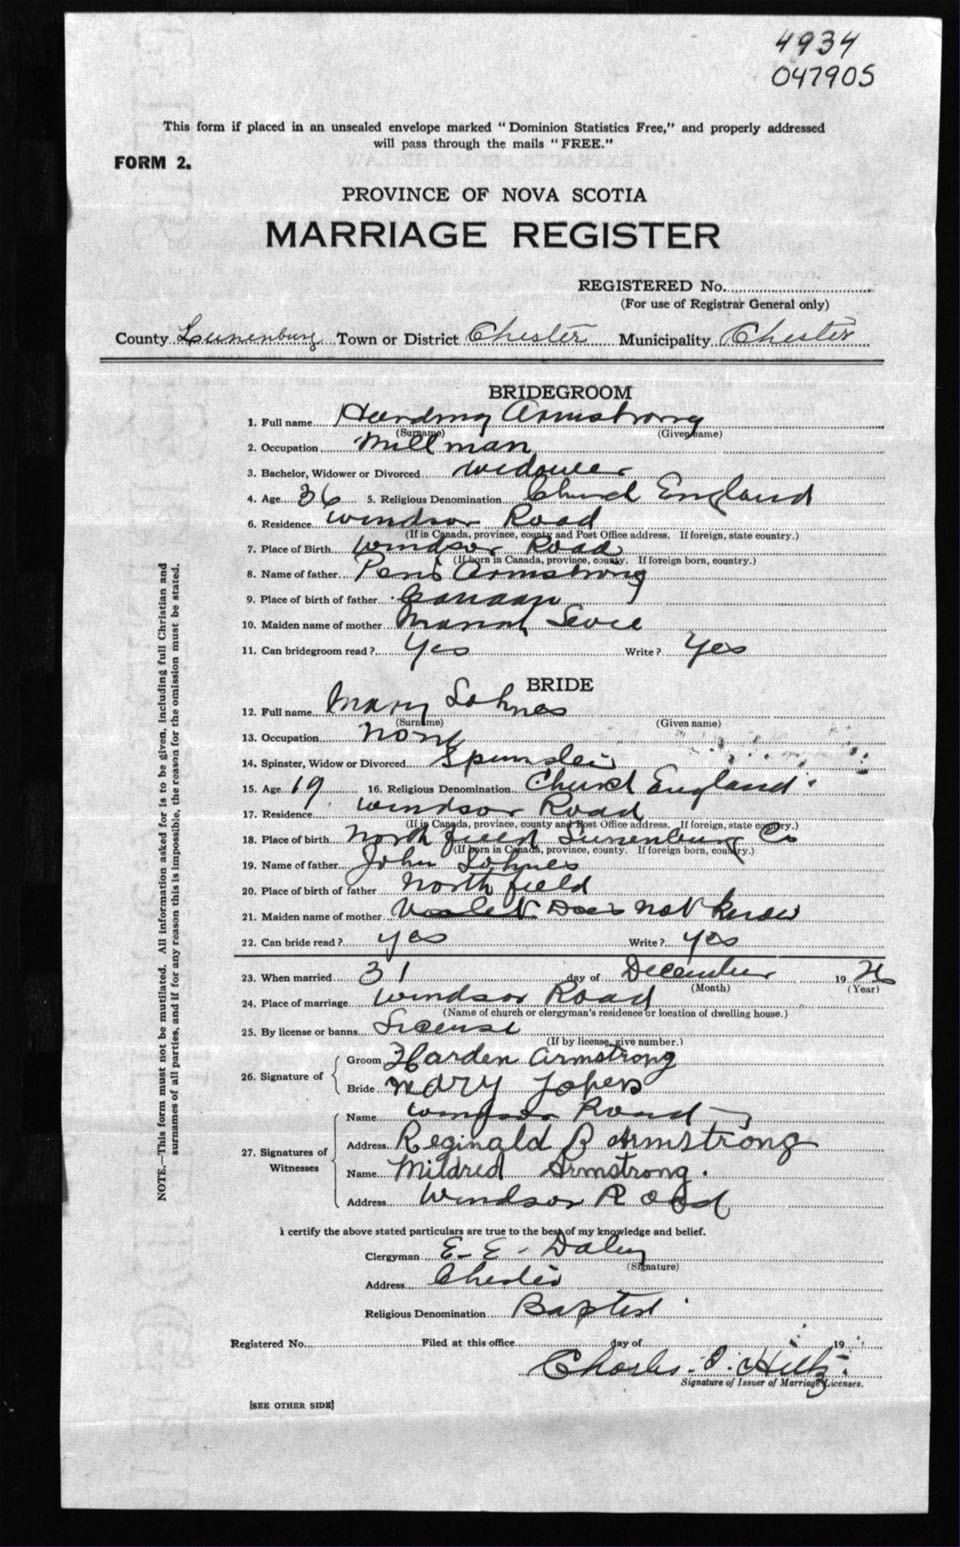 4934
047905
This form if placed in an unsealed envelope marked "Dominion Statistics Free," and properly addressed
will pass through the mails "FREE."
FORM 2.
PROVINCE OF NOVA SCOTIA
MARRIAGE REGISTER
REGISTERED No.
(For use of Registrar General only)
County Lunenburg Town or District Chester Municipality Chester
BRIDEGROOM
1. Full name Harding Armstrong
(Surname) (Given name)
2. Occupation Millman
3. Bachelor, Widower or Divorced Widower
4. Age 36 5. Religious Denomination Church England
6. Residence Windsor Road
(If in Canada, province, county and Post Office address. If foreign, state country.)
7. Place of Birth Windsor Road
(If born in Canada, province, county. If foreign born, country.)
8. Name of father Armstrong
9. Place of birth of father Canaan
10. Maiden name of mother
11. Can bridegroom read? Yes Write? Yes
BRIDE
12. Full name Mary Lohnes
(Surname) (Given name)
13. Occupation None
14. Spinster, Widow or Divorced Spinster
15. Age 19 16. Religious Denomination Church England
17. Residence Windsor Road
(If in Canada, province, county and Post Office address. If foreign, state country.)
18. Place of birth North field Lunenburg Co
(If born in Canada, province, county. If foreign born, country.)
19. Name of father John Lohnes
20. Place of birth of father North field
21. Maiden name of mother Does not know
22. Can bride read? yes Write? yes
23. When married 31 day of December 1926
(Month) (Year)
24. Place of marriage Windsor Road
(Name of church or clergyman's residence or location of dwelling house.)
25. By license or banns License
(If by license, give number.)
26. Signature of Groom Harden Armstrong
Bride Mary
27. Signatures of Witnesses Name Windsor Road
Address Reginald B Armstrong
Name Mildred Armstrong.
Address Windsor Road
I certify the above stated particulars are true to the best of my knowledge and belief.
Clergyman E. E. Daley
(Signature)
Address Chester
Religious Denomination Baptist
Registered No. Filed at this office day of 19
Charles Hiltz
Signature of Issuer of Marriage Licenses.
[SEE OTHER SIDE]
NOTE.—This form must not be mutilated. All information asked for is to be given, including full Christian and
surnames of all parties, and if for any reason this is impossible, the reason for the omission must be stated.